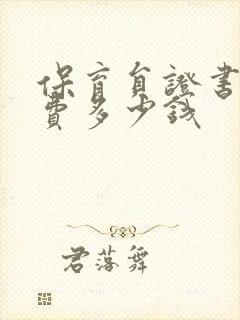 保育自證書
費多少錢
君落舞